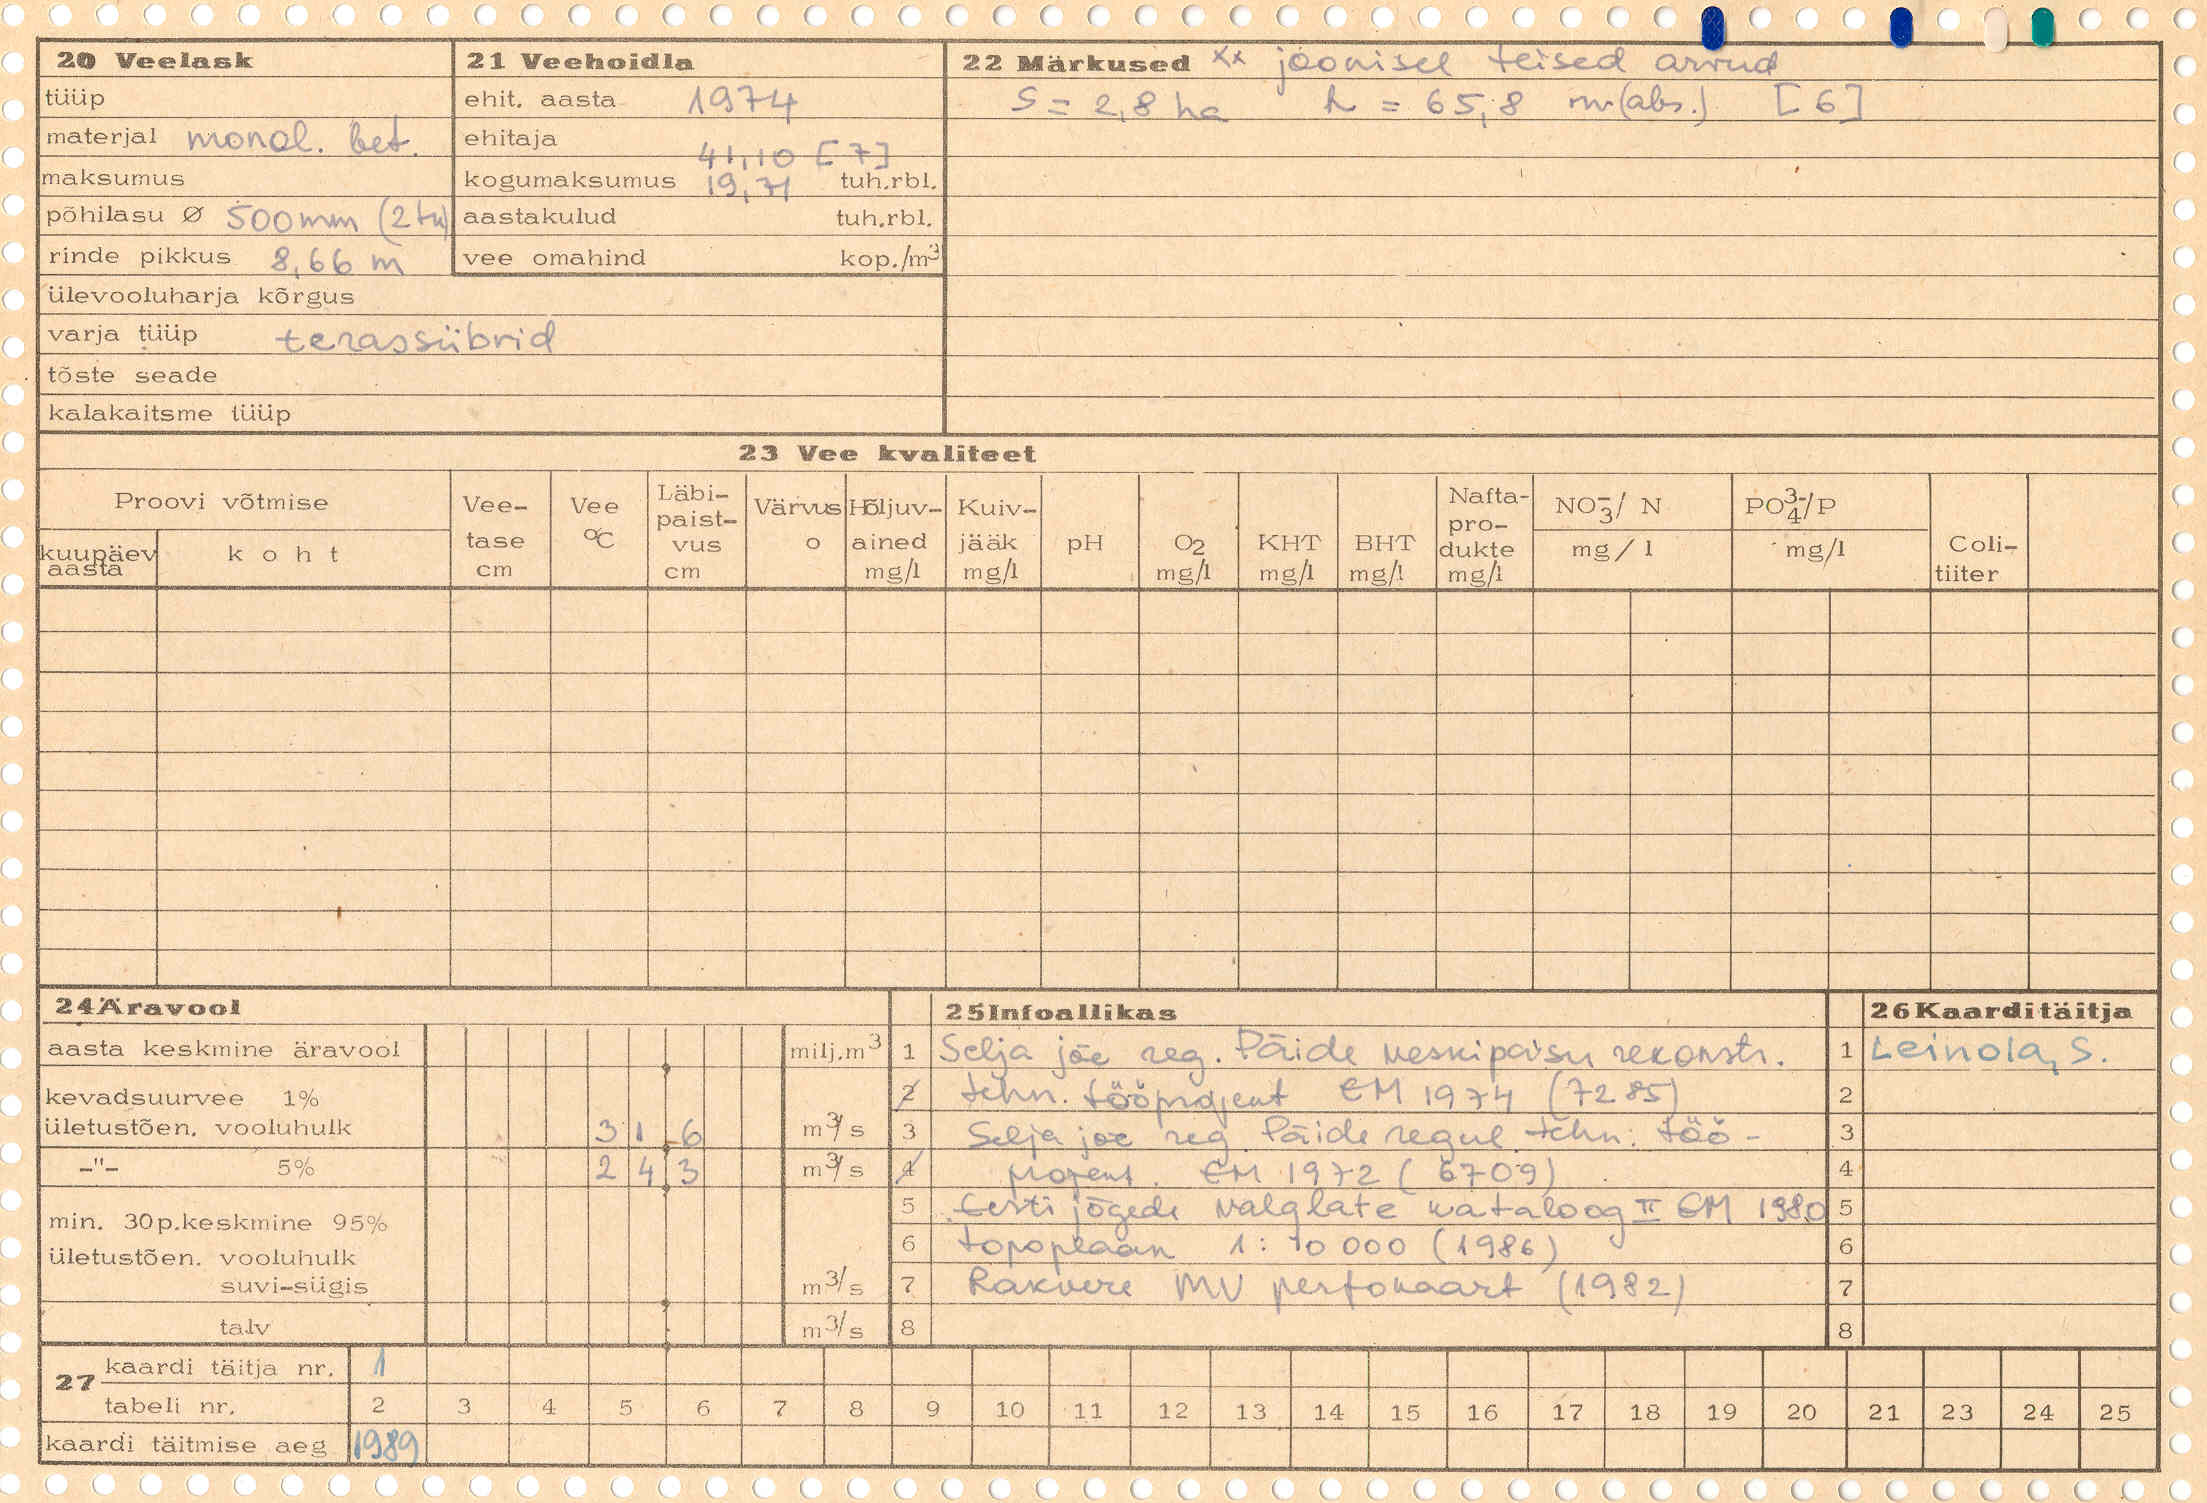 20 Veelask
tüüp
materjal monol. bet.
maksumus
põhilasu Ø 500mm (2 tk)
rinde pikkus 8,66 m
ülevooluharja kõrgus
varja tüüp terassiibrid
tõste seade
kalakaitsme tüüp
21 Veehoidla
ehit. aasta 1974
ehitaja
41,10 [7]
kogumaksumus 19,71 tuh.rbl.
aastakulud tuh.rbl.
vee omahind kop./m³
22 Märkused xx joonisel teised arvud
S = 2,8 ha h = 65,8 m(abs.) [6]
23 Vee kvaliteet
Proovi võtmise
kuupäev
aasta
koht
Vee-
tase
cm
Vee
°C
Läbi-
paist-
vus
cm
Värvus
o
Hõljuv-
ained
mg/l
Kuiv-
jääk
mg/l
pH
O2
mg/l
KHT
mg/l
BHT
mg/l
Nafta-
pro-
dukte
mg/l
NO₃⁻/ N
mg/l
PO₄³⁻/P
mg/l
Coli-
tiiter
24 Äravool
aasta keskmine äravool milj.m³
kevadsuurvee 1%
ületustõen. vooluhulk 31.6 m³/s
-"- 5% 24.3 m³/s
min. 30p.keskmine 95%
ületustõen. vooluhulk
suvi-sügis m³/s
talv m³/s
25 Infoallikas
1 Selja jõe reg. Päide veskipaisu rekonstr.
2 tehn. tööprojekt EM 1974 (7285)
3 Selja jõe reg Päide regul. tehn. töö-
4 projekt. EM 1972 (6709)
5 Eesti jõgede valglate kataloog II EM 1980
6 topoplaan 1:10 000 (1986)
7 Rakvere MV perfokaart (1982)
8
26 Kaarditäitja
1 Leinola, S.
2
3
4
5
6
7
8
27 kaardi täitja nr. 1
tabeli nr. 2 3 4 5 6 7 8 9 10 11 12 13 14 15 16 17 18 19 20 21 23 24 25
kaardi täitmise aeg 1989